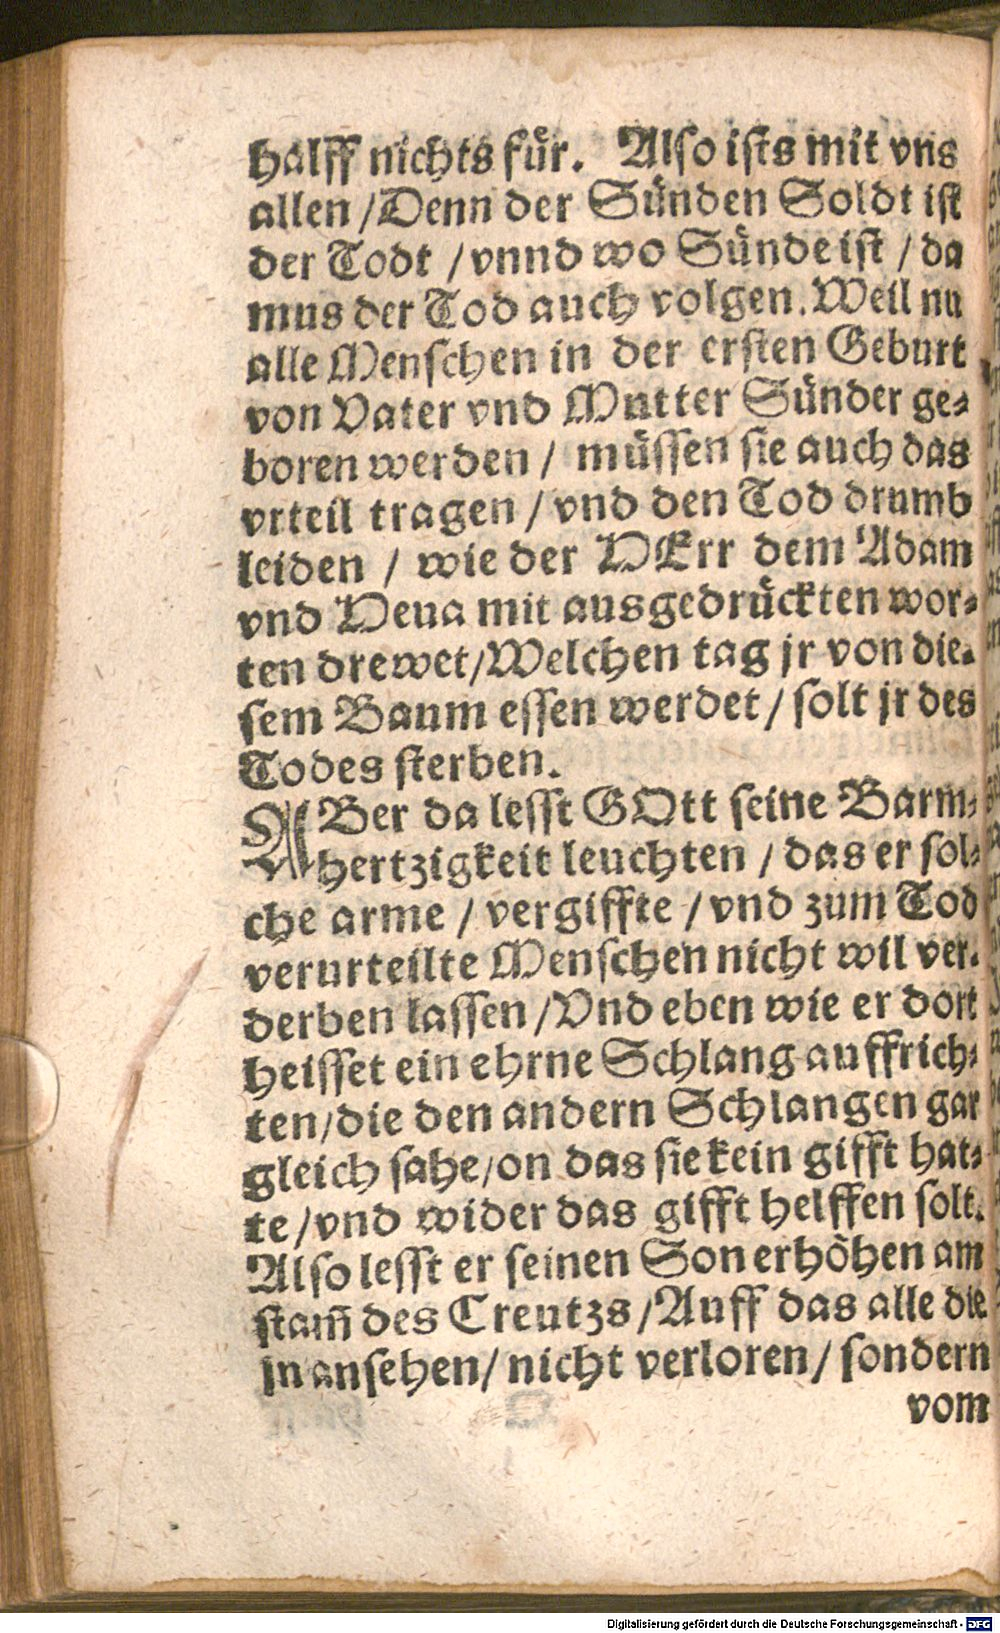 halff nichts für. Also ists mit vns
allen /Denn der Sünden Soldt ist
der Todt /vnnd wo Sünde ist / da
mus der Tod auch volgen. Weil nu
alle Menschen in der ersten Geburt
von Vater vnd Mutter Sünder ge⸗
boren werden / müssen sie auch das
vrteil tragen / vnd den Tod drumb
leiden / wie der HErr dem Adam
vnd Heua mit ausgedrückten wor⸗
ten drewet/Welchen tag jr von die⸗
sem Baum essen werdet / solt jr des
Todes sterben.
ABer da lesst GOtt seine Barm⸗
hertzigkeit leuchten / das er sol⸗
che arme / vergiffte / vnd zum Tod
verurteilte Menschen nicht wil ver⸗
derben lassen /Vnd eben wie er dort
heisset ein ehrne Schlang auffrich⸗
ten/die den andern Schlangen gar
gleich sahe/on das sie kein gifft hat⸗
te /vnd wider das gifft helffen solt.
Also lesst er seinen Son erhöhen am
stam̃ des Creutzs /Auff das alle die
jn ansehen/ nicht verloren/ sondern
vom
Digitalisierung gefördert durch die Deutsche Forschungsgemeinschaft - DFG